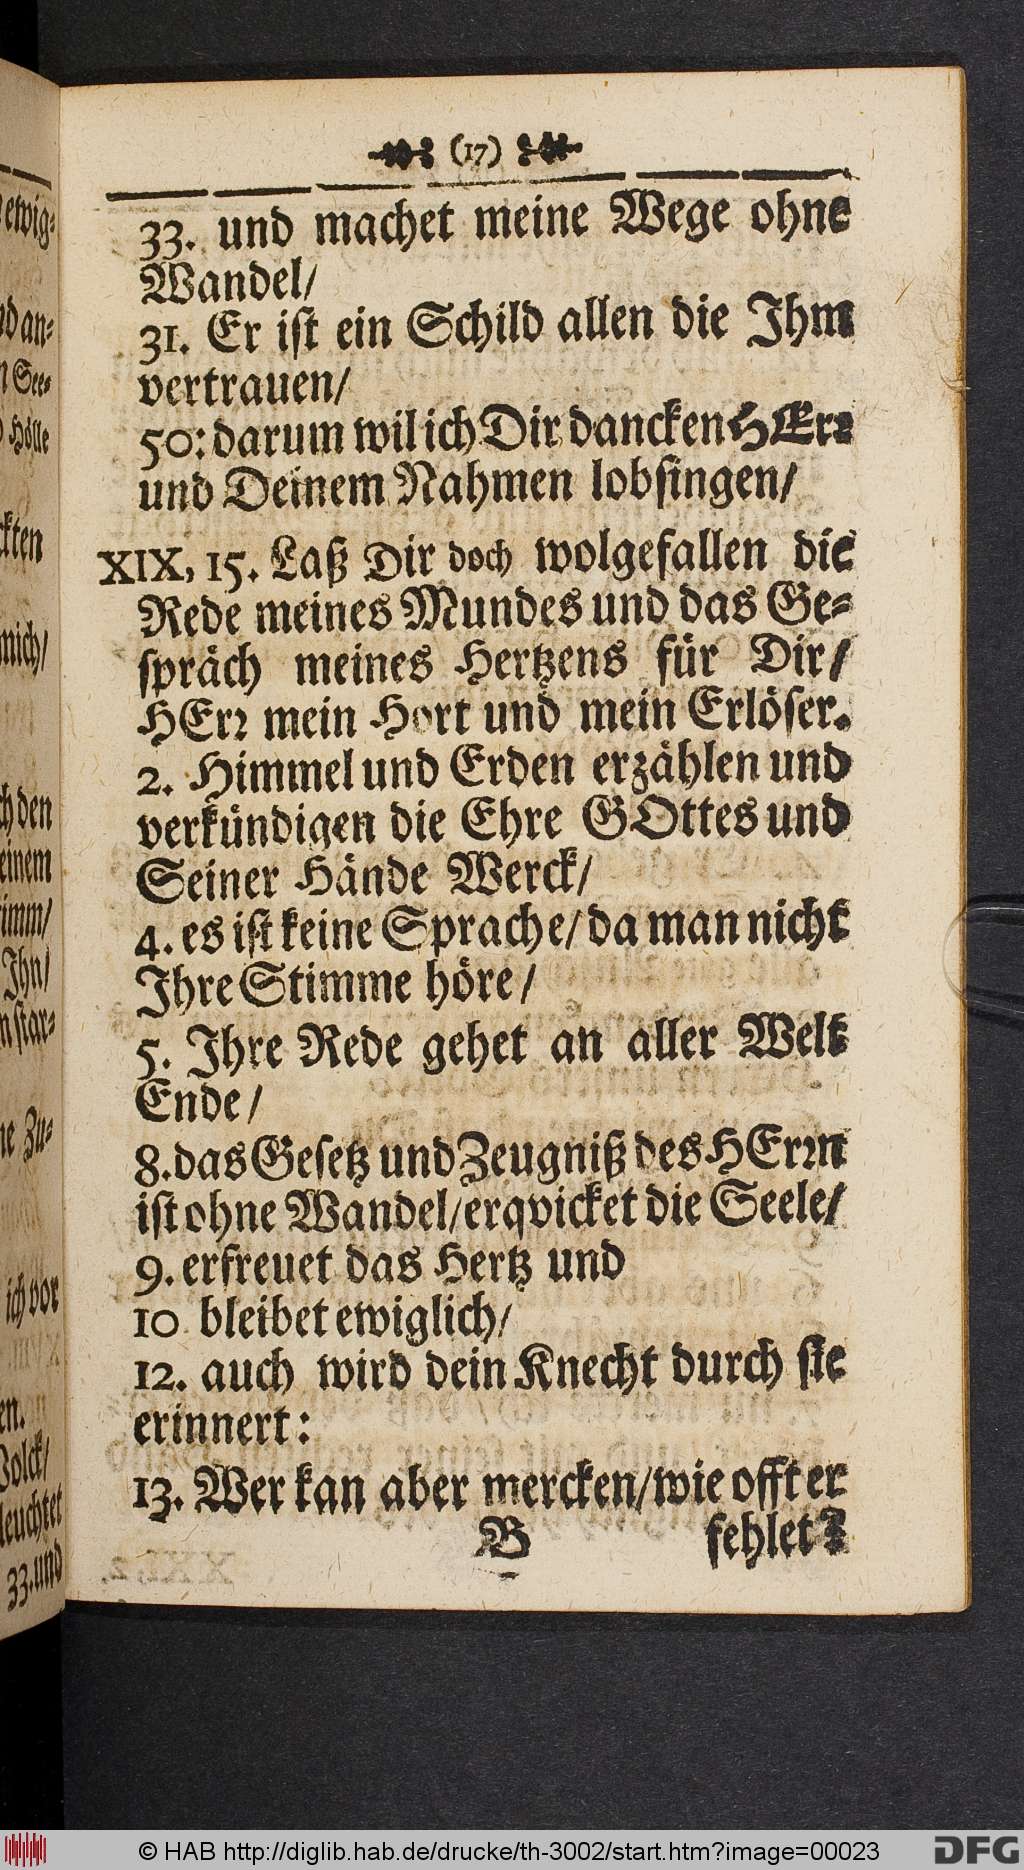 (17)
33. und machet meine Wege ohne
Wandel/
31. Er ist ein Schild allen die Ihm
vertrauen/
50: darum wil ich Dir dancken HErr
und Deinem Nahmen lobsingen/
XIX, 15. Laß Dir doch wolgefallen die
Rede meines Mundes und das Ge-
spräch meines Hertzens für Dir/
HErr mein Hort und mein Erlöser.
2. Himmel und Erden erzählen und
verkündigen die Ehre GOttes und
Seiner Hände Werck/
4. es ist keine Sprache/ da man nicht
Ihre Stimme höre/
5. Ihre Rede gehet an aller Welt
Ende/
8. das Gesetz und Zeugniß des HErrn
ist ohne Wandel/ erqvicket die Seele/
9. erfreuet das Hertz und
10 bleibet ewiglich/
12. auch wird dein Knecht durch sie
erinnert:
13. Wer kan aber mercken/ wie offt er
B fehlet?
© HAB http://diglib.hab.de/drucke/th-3002/start.htm?image=00023
DFG